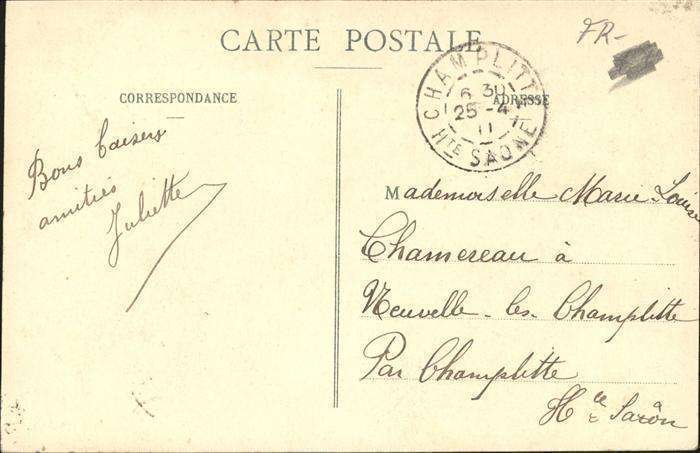 FR-
CARTE POSTALE
CORRESPONDANCE
ADRESSE
CHAMPLITTE
6 30
25 - 4
11
HTE SAONE
Bons baisers
amitiés
Juliette
Mademoiselle Marie Louise
Chamereau à
Neuvelle-les-Champlitte
Par Champlitte
Hte Saôn